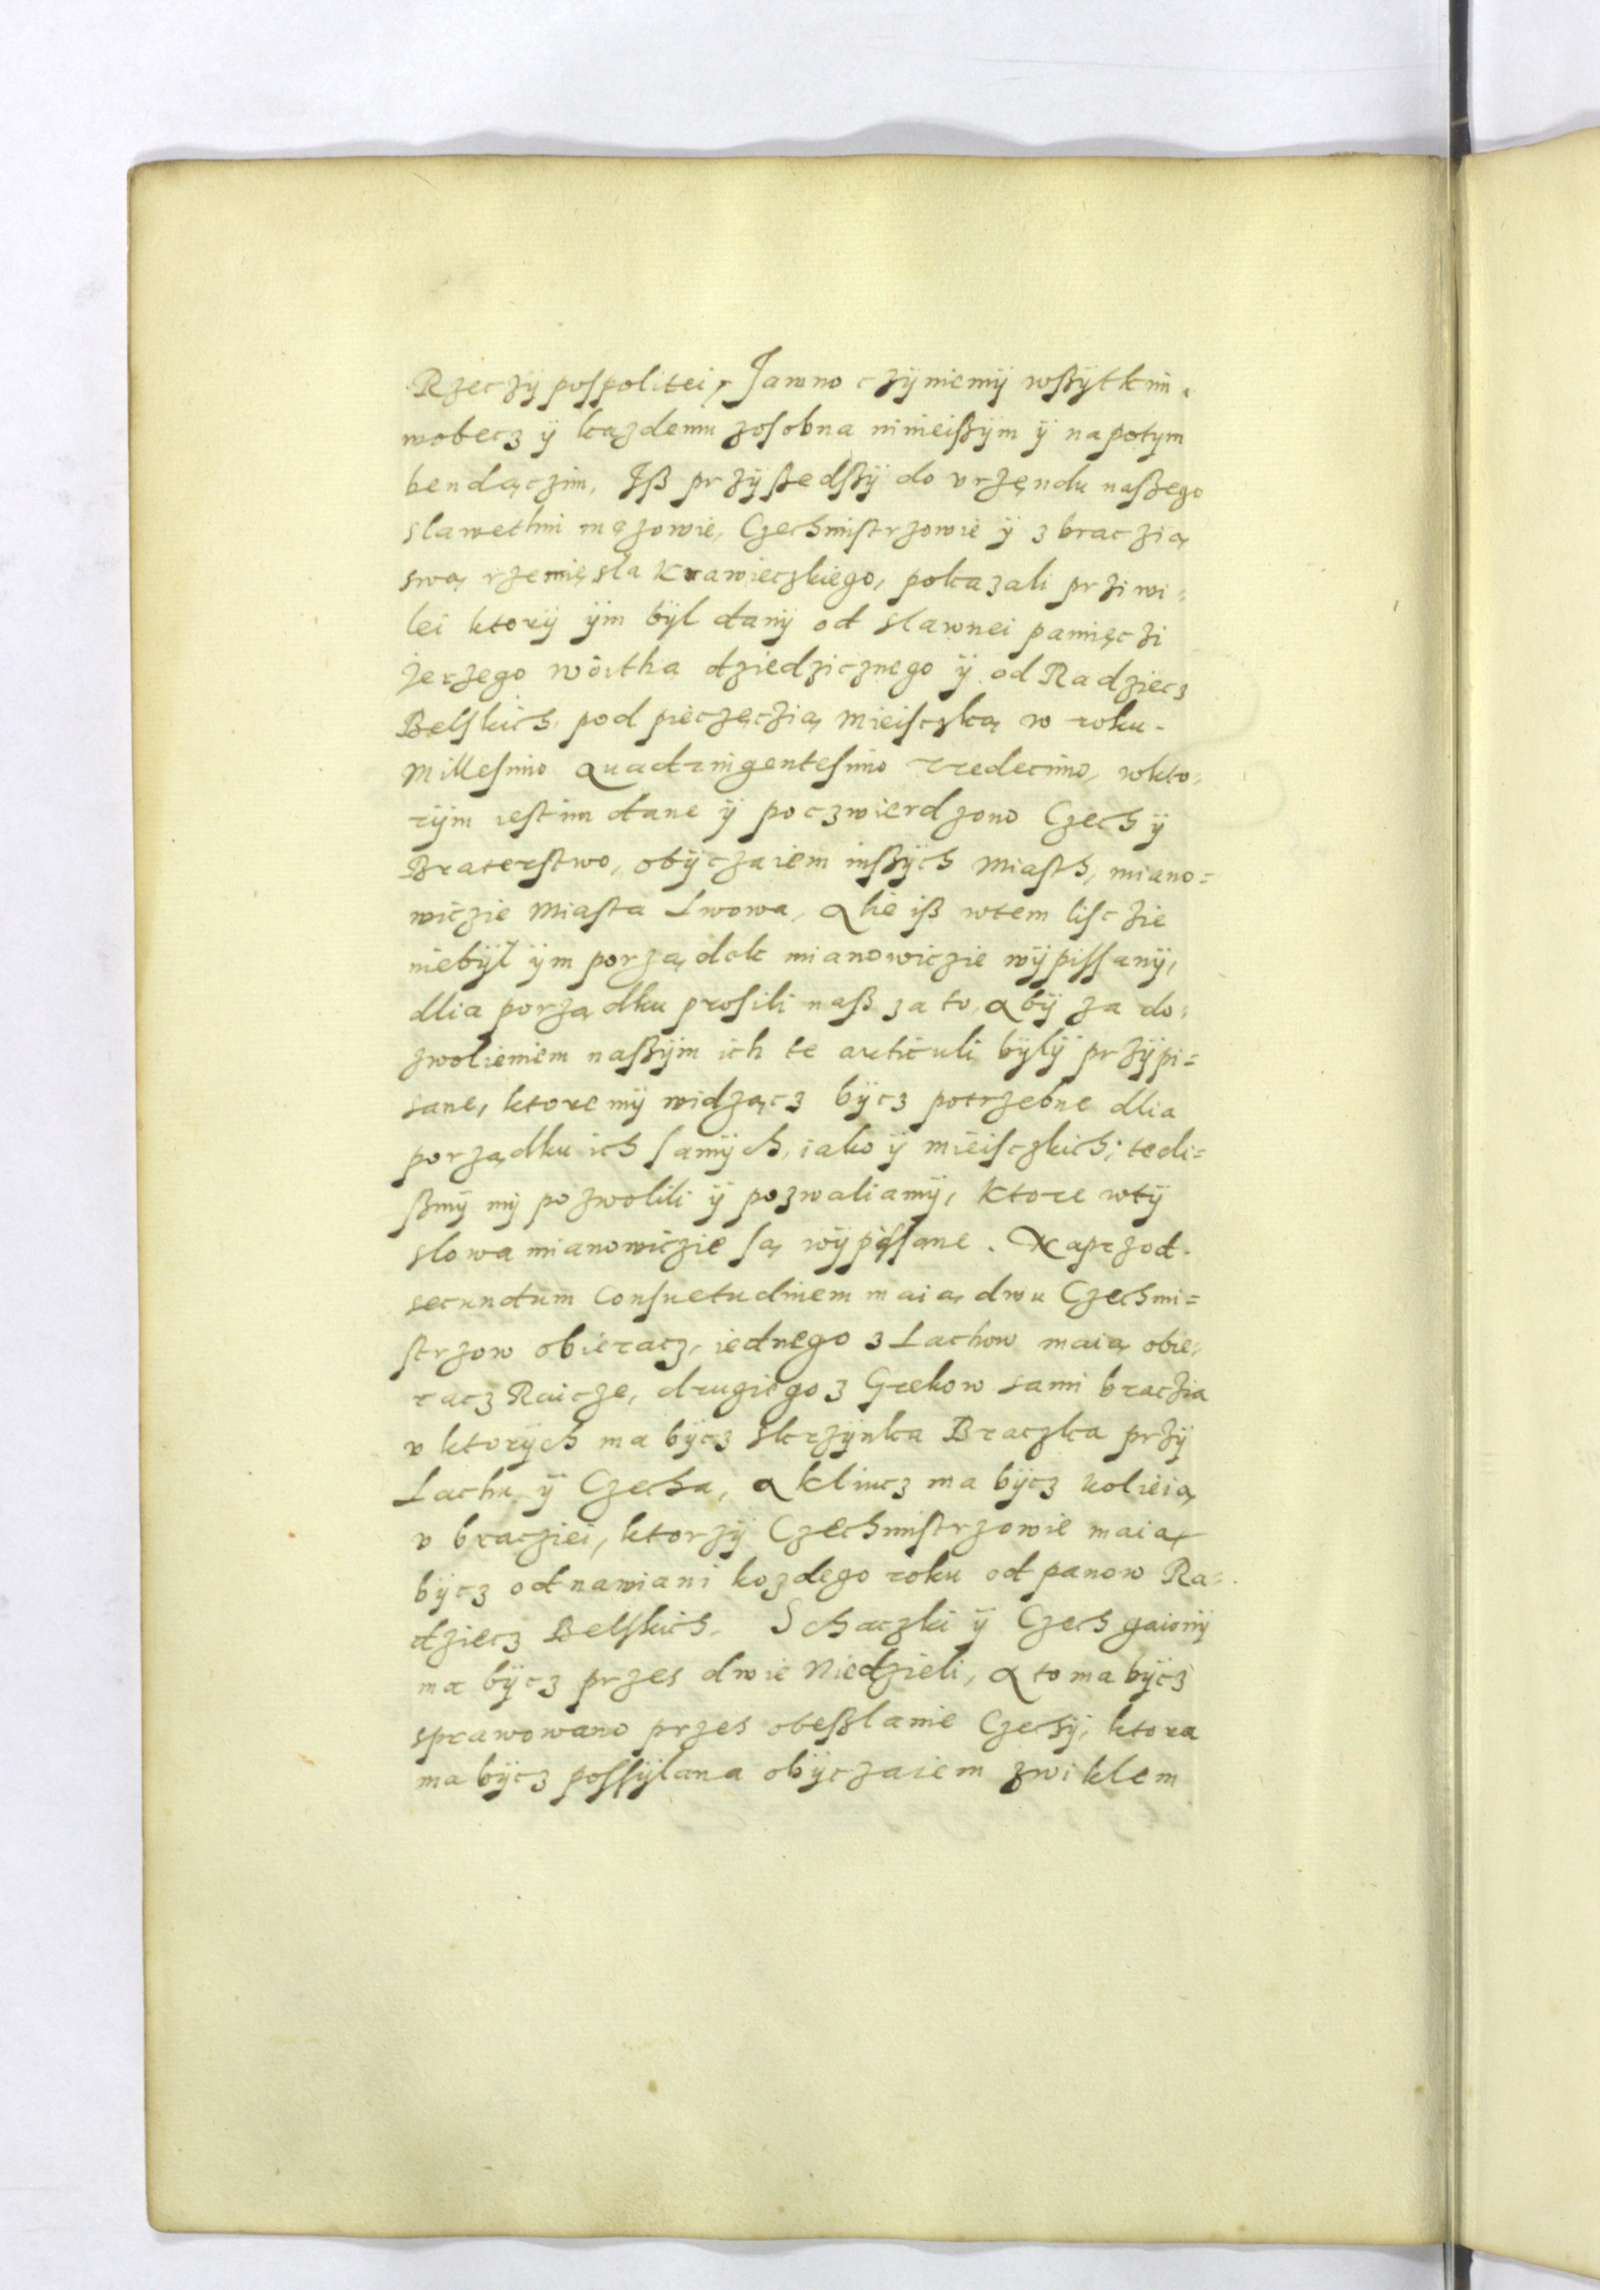 Rzeczÿ pospolitei, Jawno czÿniemÿ wßÿtkim.
wobecz ÿ kazdemu zosobna ninieißÿm ÿ napotym
bendączim, Iß przÿßedßÿ do vrzęndu naßego
slawethni męzowie, Czechmistrzowie ÿ z braczią
swą rzemięsla Krawieczkiego, pokazali prziwi=
lei ktorÿ ÿm bÿl danÿ od slawnei pamięczi
Jerzego woitha dziedzicznego ÿ od Radziecz
Belskich pod pieczęczią mieisczką w roku.
Millesimo Quadringentesimo tredecimo, wkto=
rÿm iest im dane ÿ poczwierdzono Czech ÿ
Braterstwo, obÿczaiem inßÿch miasth, miano=
wiczie miasta Lwowa, Ale iß wtem lisczie
niebÿl ÿm porządek mianowiczie wÿpissanÿ,
dlia porządku prosili naß za to, abÿ za do=
zwoleniem naßÿm ich te articuli bÿlÿ przÿpi=
sane, ktore mÿ widząc bÿcz potrzebne dlia
porządku ich samÿch, iako ÿ mieisczkich; tedi=
ßmÿ mÿ pozwolili ÿ pozwaliamÿ, ktore wtÿ
slowa mianowiczie są wÿpissane. Naprzod.
secundum Consuetudinem maią dwu Czechmi=
strzow obieracz, iednego z Lachow maią obie=
racz Raicze, drugiego z Grekow sami braczia
v ktorÿch ma bÿcz skrzÿnka Braczka przÿ
Lachu ÿ Czecha, a kliucz ma bÿcz kolieią
v bracziei, ktorzÿ Czechmistrzowie maią
bÿcz odnawiani kozdego roku od panow Ra=
dziecz Belskich. Schaczki ÿ Czech gaionÿ
ma bÿcz przes dwie Niedzieli, a to ma bÿcz
sprawowano przes obeßlanie Czechÿ, ktora
ma bÿcz possÿlana obÿczaiem zwiklem